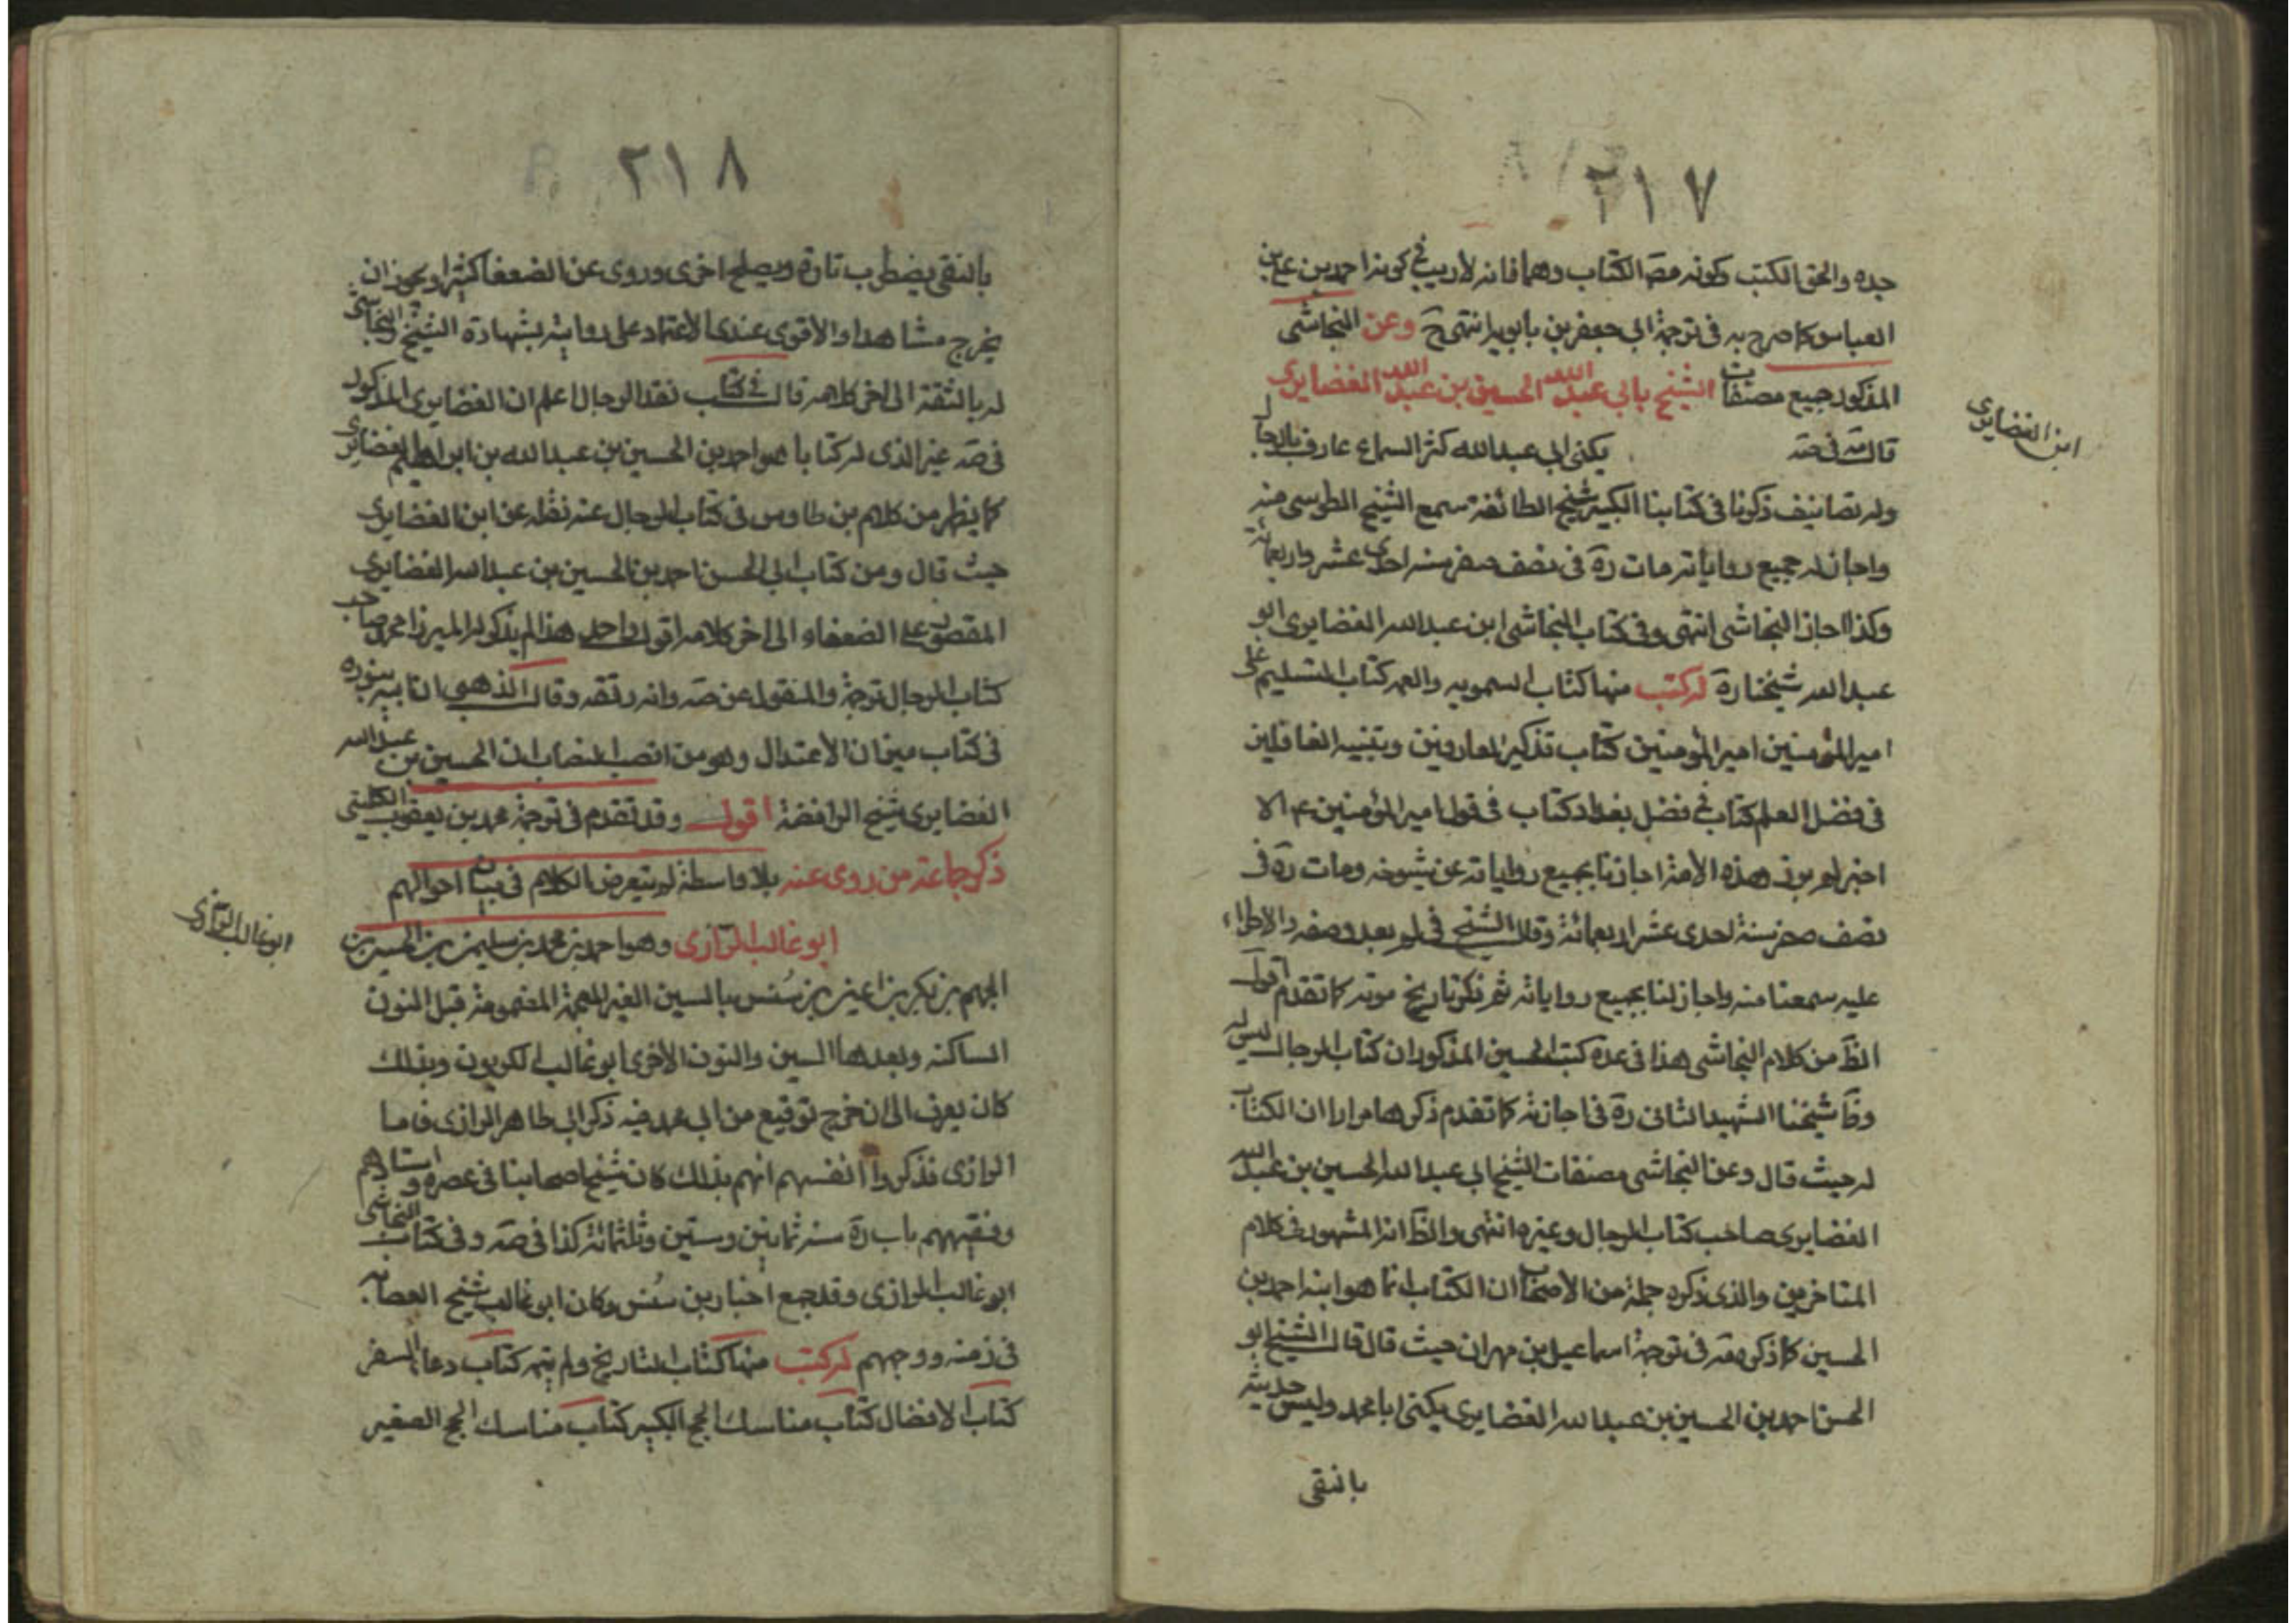 ٢١٧
جده والحق الكتب وكونه مصّ الكتاب وهما فانه لا ريب في كونه احمد بن علي بن
العباس كما صرح به في ترجمة ابي جعفر بن بابويه انتهى حَ وعن النجاشي
المذكور جميع مصنفات الشيخ بابي عبد الله الحسين بن عبد الله الغضايري
ابن الغضايري
قال مه في صه يكنى ابي عبدالله كثر السماع عارف بالرجال
وله تصانيف ذكرنا في كتابنا الكبير شيخ الطائفة سمع الشيخ الطوسي منه
واجاز له جميع رواياته مات رة في نصف صفر سنه احدى عشر واربعمائة
وكذا اجاز النجاشي انتهى وفي كتاب النجاشي ابن عبدالله الغضايري ابو
عبدالله شيخنا رة له كتب منها كتاب السمويه والعمه كتاب التسليم على
امير المؤمنين امير المؤمنين كتاب تذكير العاروفين وتنبيه الغافلين
في فضل العلم كتاب في فضل بغداد كتاب في قول امير المؤمنين ع الا
اخبركم بوز هذه الامة اجازنا بجميع رواياته عن شيوخه ومات رة في
نصف صفر سنة احدى عشر اربعمائة وقال الشيخ في لم بعد وصفه والاطراء
عليه سمعنا منه واجاز لنا بجميع رواياته ثم ذكر تاريخ موته كما تقدم اقول
الظّ من كلام النجاشي هذا في عدة كتب الحسين المذكور ان كتاب الرجال ليس له
وظّ شيخنا الشهيد الثاني رة في اجازته كما تقدم ذكرها مرارا ان الكتاب
له حيث قال وعن النجاشي مصنفات الشيخ ابي عبد الله الحسين بن عبد الله
الغضايري صاحب كتاب الرجال وغيره انتهى والظّ انه المشهور في كلام
المتاخرين والذي ذكره جملة من الاصحاب ان الكتاب انما هو ابنه احمد بن
الحسين كما ذكره مه في ترجمة اسماعيل بن مهران حيث قال قال الشيخ ابو
الحسن احمد بن الحسين بن عبدالله الغضايري يكنى ابا محمد وليس حديثه
بالنقي
٢١٨
بالنقي يضطرب تارة ويصلح اخرى وروى عن الضعفا كثيرا ويجوز ان
يخرج مشاهدا والاقوى عندي الاعتماد على روايته بشهادة الشيخ والنجاشي
له بالثقة الى اخر كلامه قال في كتاب نقد الرجال اعلم ان الغضايري المذكور
في صه غير الذي له كتابا هو احمد بن الحسين بن عبدالله بن ابراهيم الغضايري
كما يظهر من كلام بن طاوس في كتاب الرجال عنه نقله عن ابن الغضايري
حيث قال ومن كتاب ابي الحسن احمد بن الحسين بن عبدالله الغضايري
المقصور على الضعفاء الى اخر كلامه اقول واحد هذا لم يذكر له الميرزا محمد صاحب
كتاب الرجال ترجمة والمنقول عن صه وانه رتقه وقال الذهبي
في كتاب ميزان الاعتدال وهو من انصب النصاب ان الحسين بن عبدالله
الغضايري شيخ الرافضة اقول وقد تقدم في ترجمة محمد بن يعقوب الكليني
ذكر جماعة من روى عنه بلا واسطة لم يتعرض الكلام في بيان احوالهم
ابو غالب الرازي
ابو غالب الرازي وهو احمد بن محمد بن سليمن بن الحسين بن
الجهم بن بكر بن اعين بن سُنس بالسين الغير المعجمة المضمومة قبل النون
الساكنه وبعدها السين والنون الاخرى ابو غالب الكريون وبذلك
كان يعرف الى ان خرج توقيع من ابي محمد فيه ذكر ابي طاهر الرازي فاما
الرازي فذكروا انفسهم انهم بذلك كان شيخ اصحابنا في عصره واستادهم
وفقيههم باب رة سنه ثمانين وستين وثلثمائة كذا في صه وفي كتاب النجاشي
ابو غالب الرازي وقد جمع اخبار بن سُنس وكان ابو غالب شيخ العصابه
في زمنه ووجههم له كتب منها كتاب التاريخ ولم يتمه كتاب دعا السفر
كتاب الافضال كتاب مناسك الحج الكبير كتاب مناسك الحج الصغير